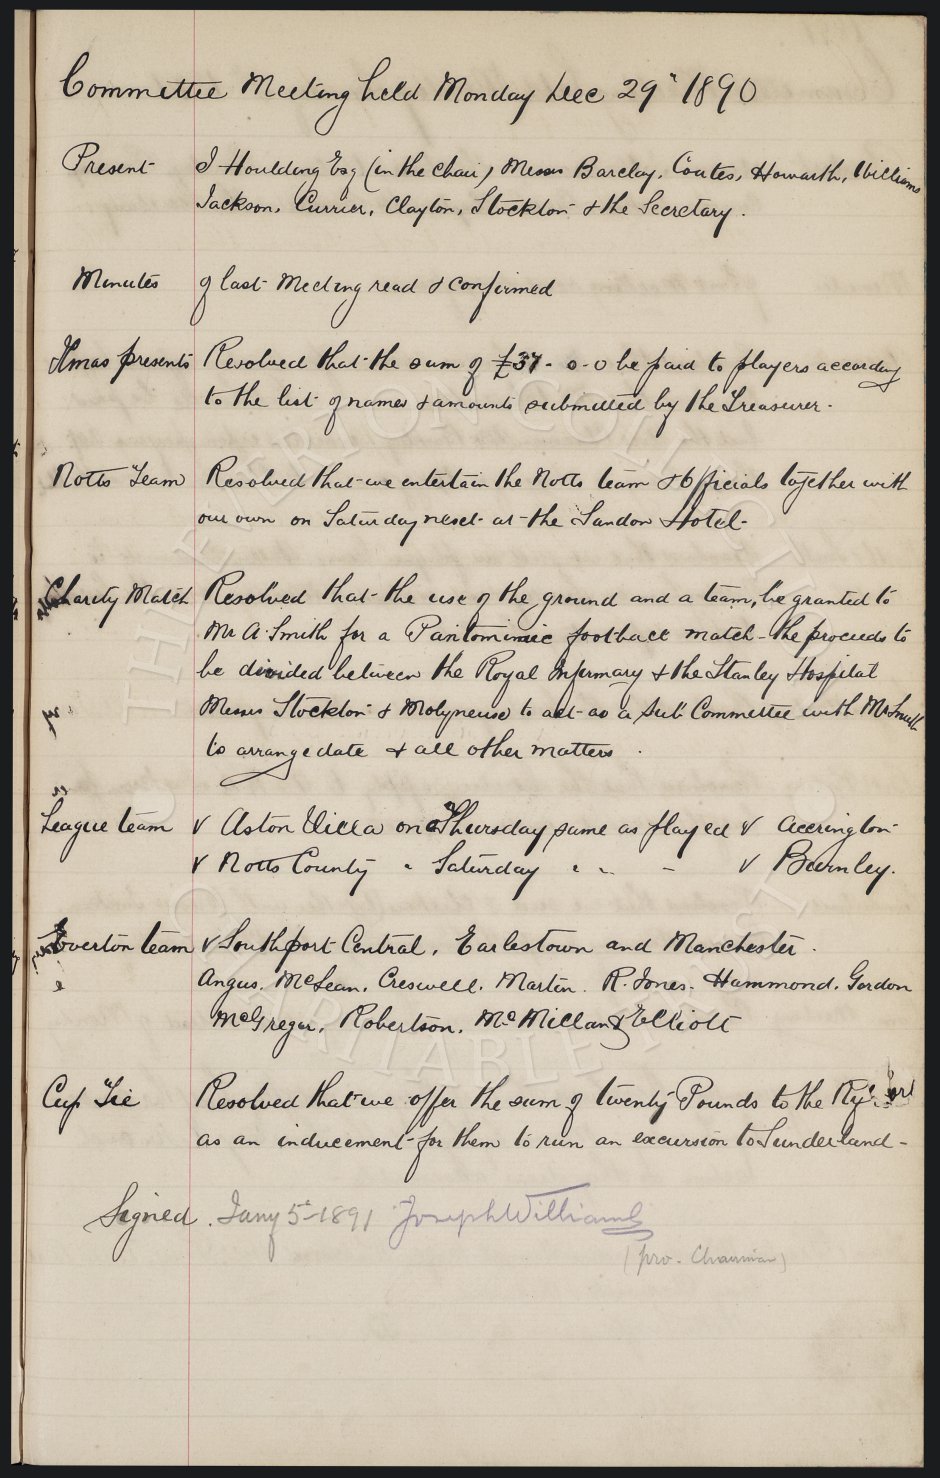 Committee Meeting held Monday Dec 29" 1890
Present J Houlding Esq (in the chair) Messrs Barclay, Coates, Howarth, Williams
Jackson, Currier, Clayton, Stockton & the Secretary.
Minutes of last Meeting read & confirmed
Xmas presents Resolved that the sum of £37-0-0 be paid to players according
to the list of names & amounts submitted by the Treasurer.
Notts Team Resolved that we entertain the Notts team & Officials together with
our own on Saturday next at the Sandon Hotel.
Charity Match Resolved that the use of the ground and a team, be granted to
Mr A. Smith for a Pantomimic football match - the proceeds to
be divided between the Royal Infirmary & the Stanley Hospital
Messrs Stockton & Molyneux to act as a Sub Committee with Mr Smith
to arrange date & all other matters.
League team v Aston Villa on Thursday same as played v Accrington
v Notts County " Saturday " " - v Burnley.
Everton team v Southport Central, Earlestown and Manchester.
Angus. McLean. Creswell. Martin. R. Jones. Hammond. Gordon
McGregor. Robertson. McMillan & Elliott
Cup Tie Resolved that we offer the sum of twenty Pounds to the Ry
as an inducement for them to run an excursion to Sunderland -
Signed. Jany 5t 1891 Joseph Williams
(pro. Chairman)
THE EVERTON COLLECTION
CHARITABLE TRUST